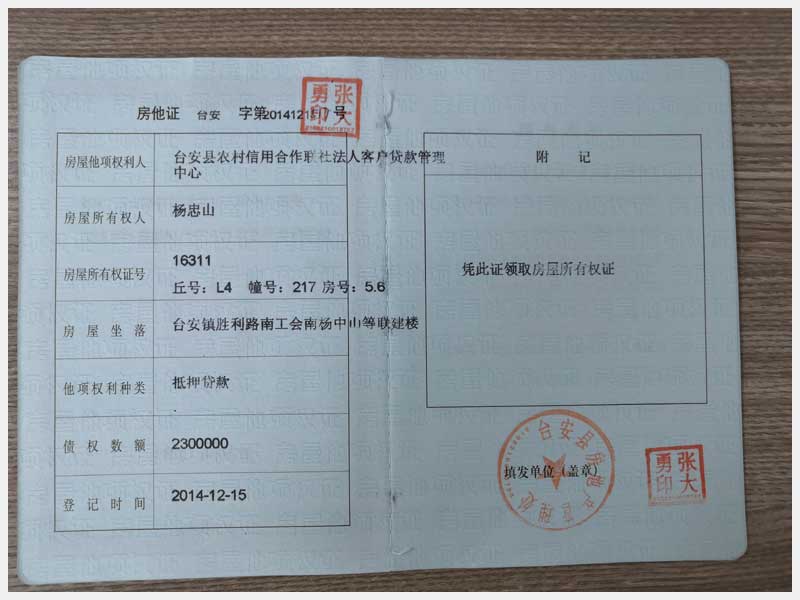 房他证 台安 字第2014121517号
张大勇印
房屋他项权利人 台安县农村信用合作联社法人客户贷款管理
中心
房屋所有权人 杨忠山
房屋所有权证号 16311
丘号：L4 幢号：217 房号：5.6
房屋坐落 台安镇胜利路南工会南杨中山等联建楼
他项权利种类 抵押贷款
债权数额 2300000
登记时间 2014-12-15
附 记
凭此证领取房屋所有权证
台安县房地产管理处
填发单位（盖章）
张大勇印